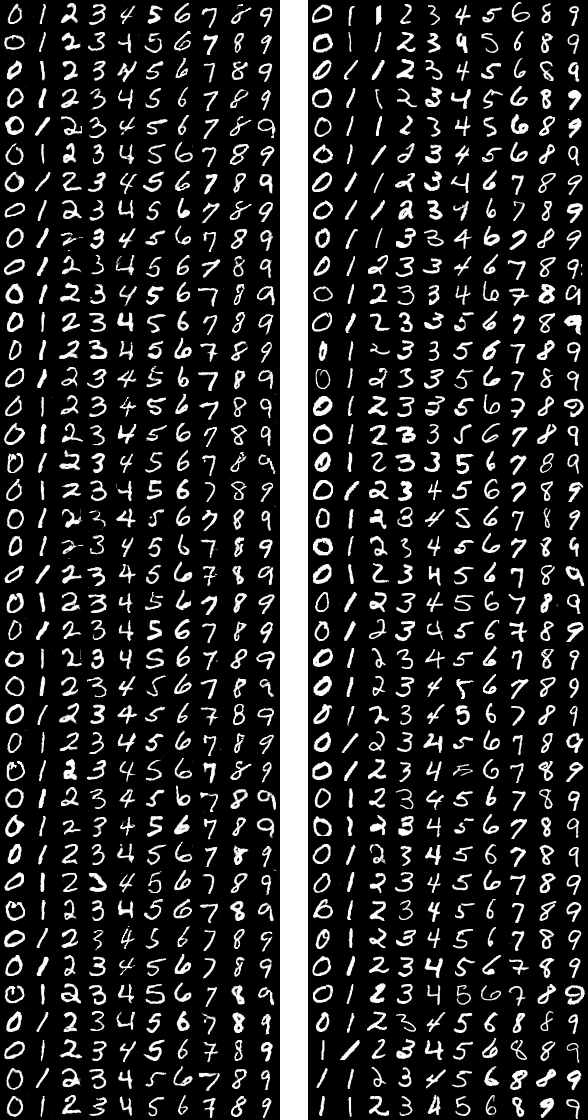 0 1 2 3 4 5 6 7 8 9
0 1 2 3 4 5 6 7 8 9
0 1 2 3 4 5 6 7 8 9
0 1 2 3 4 5 6 7 8 9
0 1 2 3 4 5 6 7 8 9
0 1 2 3 4 5 6 7 8 9
0 1 2 3 4 5 6 7 8 9
0 1 2 3 4 5 6 7 8 9
0 1 2 3 4 5 6 7 8 9
0 1 2 3 4 5 6 7 8 9
0 1 2 3 4 5 6 7 8 9
0 1 2 3 4 5 6 7 8 9
0 1 2 3 4 5 6 7 8 9
0 1 2 3 4 5 6 7 8 9
0 1 2 3 4 5 6 7 8 9
0 1 2 3 4 5 6 7 8 9
0 1 2 3 4 5 6 7 8 9
0 1 2 3 4 5 6 7 8 9
0 1 2 3 4 5 6 7 8 9
0 1 2 3 4 5 6 7 8 9
0 1 2 3 4 5 6 7 8 9
0 1 2 3 4 5 6 7 8 9
0 1 2 3 4 5 6 7 8 9
0 1 2 3 4 5 6 7 8 9
0 1 2 3 4 5 6 7 8 9
0 1 2 3 4 5 6 7 8 9
0 1 2 3 4 5 6 7 8 9
0 1 2 3 4 5 6 7 8 9
0 1 2 3 4 5 6 7 8 9
0 1 2 3 4 5 6 7 8 9
0 1 2 3 4 5 6 7 8 9
0 1 2 3 4 5 6 7 8 9
0 1 2 3 4 5 6 7 8 9
0 1 2 3 4 5 6 7 8 9
0 1 2 3 4 5 6 7 8 9
0 1 2 3 4 5 6 7 8 9
0 1 2 3 4 5 6 7 8 9
0 1 2 3 4 5 6 7 8 9
0 1 2 3 4 5 6 7 8 9
0 1 2 3 4 5 6 7 8 9
0 1 1 2 3 4 5 6 8 9
0 1 1 2 3 4 5 6 8 9
0 1 1 2 3 4 5 6 8 9
0 1 1 2 3 4 5 6 8 9
0 1 1 2 3 4 5 6 8 9
0 1 1 2 3 4 5 6 8 9
0 1 1 2 3 4 6 7 8 9
0 1 1 2 3 4 6 7 8 9
0 1 1 3 3 4 6 7 8 9
0 1 2 3 3 4 6 7 8 9
0 1 2 3 3 4 6 7 8 9
0 1 2 3 3 5 6 7 8 9
0 1 2 3 3 5 6 7 8 9
0 1 2 3 3 5 6 7 8 9
0 1 2 3 3 5 6 7 8 9
0 1 2 3 3 5 6 7 8 9
0 1 2 3 3 5 6 7 8 9
0 1 2 3 4 5 6 7 8 9
0 1 2 3 4 5 6 7 8 9
0 1 2 3 4 5 6 7 8 9
0 1 2 3 4 5 6 7 8 9
0 1 2 3 4 5 6 7 8 9
0 1 2 3 4 5 6 7 8 9
0 1 2 3 4 5 6 7 8 9
0 1 2 3 4 5 6 7 8 9
0 1 2 3 4 5 6 7 8 9
0 1 2 3 4 5 6 7 8 9
0 1 2 3 4 5 6 7 8 9
0 1 2 3 4 5 6 7 8 9
0 1 2 3 4 5 6 7 8 9
0 1 2 3 4 5 6 7 8 9
0 1 2 3 4 5 6 7 8 9
0 1 2 3 4 5 6 7 8 9
0 1 2 3 4 5 6 7 8 9
0 1 2 3 4 5 6 7 8 9
0 1 2 3 4 5 6 7 8 9
0 1 2 3 4 5 6 8 8 9
1 1 2 3 4 5 6 8 8 9
1 1 2 3 4 5 6 8 8 9
1 1 2 3 4 5 6 8 9 9